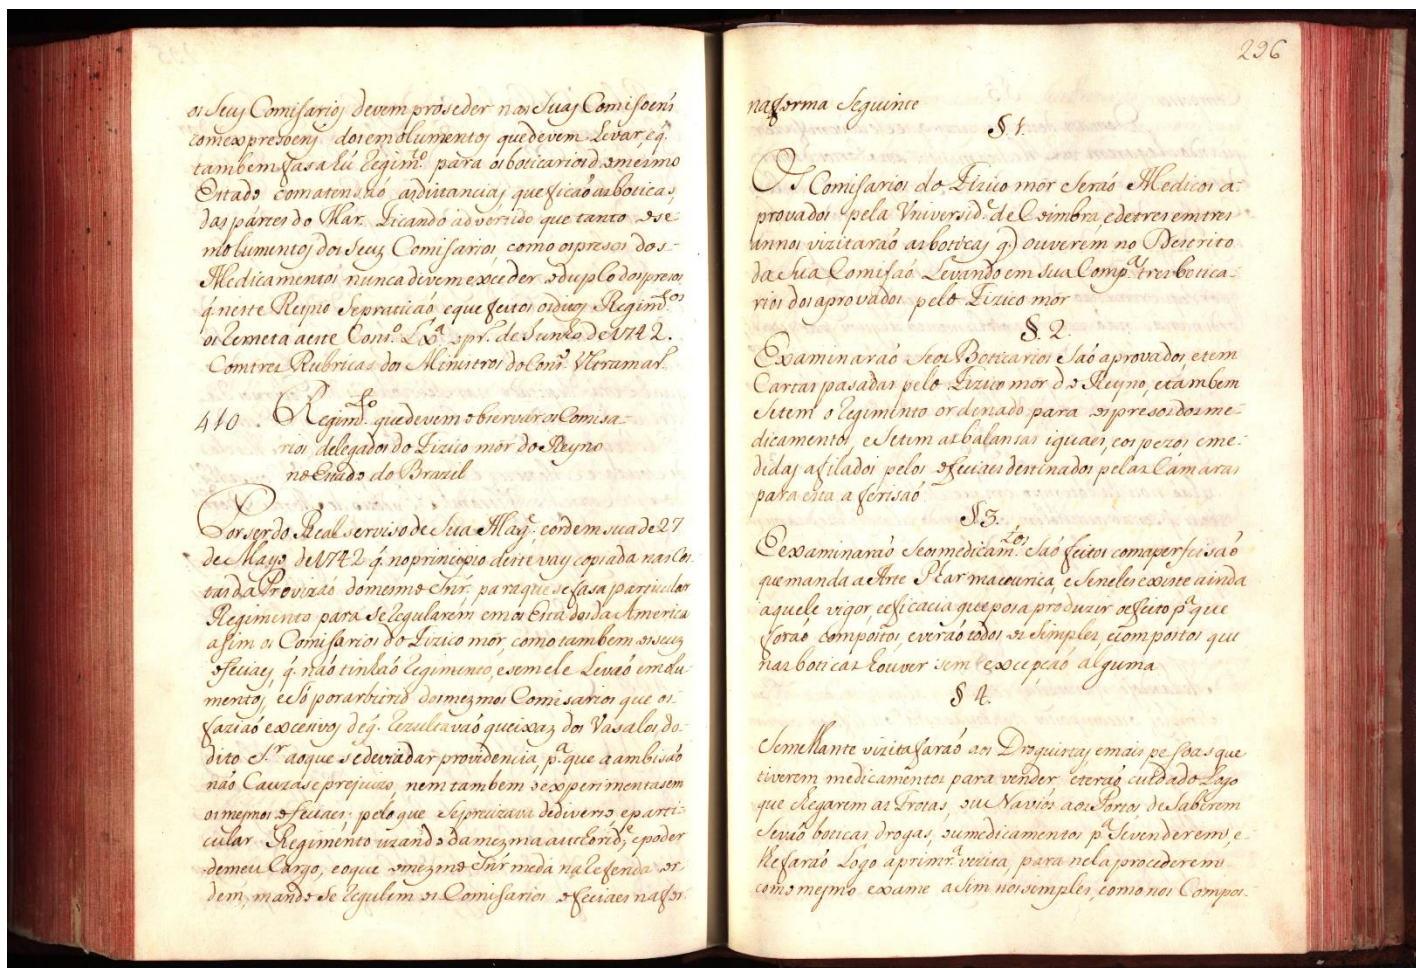 os seus Comisarios devem proseder nas suas Comisoens
com expresoens dos emolumentos que devem Levar, e q.
tambem fasa hũ regim.to para os boticarios do mesmo
Estado com atensaõ as distancias, que ficaõ as boticas,
das partes do Mar. Ficando advertido que tanto os e-
molumentos dos seus Comisarios, como os presos dos-
Medicamentos nunca divem exceder o duplo dos presos,
q neste Reyno se praticaõ e que feitos os ditos Regim.tos
os remeta a este Cons.o Lx.a o pr.o de Junho de 1742.
Com tres Rubricas dos Ministros do Cons.o Vltramar.
410. Regim.to que devem observar os Comisa-
rios delegados do Fizico mor do Reyno
no Estado do Brazil
Por ser do Real serviso de Sua Mag.e e ordem sua de 27
de Mayo de 1742 q. no principio deste vay copiada nas Cos-
tas da Provizaõ do mesmo Snr. para que se fasa particular
Regimento para se regularem em os Estados da America
asim os Comisarios do Fizico mor, como tambem os seus
oficiaes, q. naõ tinhaõ regimento, e sem ele Levaõ emolu-
mentos, e só por arbitrio dos mezmos Comisarios que os-
faziaõ excesivos de q. rezultavaõ queixaz dos Vasalos, do-
dito S.r ao que se devia dar providencia, p.a que a ambisaõ
naõ Cauzase prejuizo, nem tambem o experimentasem
os mesmos oficiaes; pelo que se precizava de diverso, e parti-
cular Regimento uzando da mezma authorid.e, e poder
de meu Cargo, e o que o mezmo Snr. meda na referida or-
dem, mando se regulem os Comisarios e oficiaes na for-
296
na forma seguinte
§ 1.
Os Comisarios do Fizico mor seraõ Medicos a-
provados pela Vniversid.e de Coimbra, e de tres em tres
annos vizitaraõ as boticas q. ouverem no Destrito
da sua Comisaõ Levando em sua Comp.a tres botica-
rios dos aprovados pelo Fizico mor
§. 2.
Examinaraõ se os Boticarios saõ aprovados, e tem
Cartas pasadas pelo Fizico mor do Reyno, e tambem
se tem o regimento ordenado para os presos dos me-
dicamentos, e se tem as balansas iguaes, e os pezos, e me-
didas afilados pelos oficiaes destinados pelas Camaras
para esta aferisaõ
§ 3.
E examinaraõ se os medicam.tos saõ feitos com a perfeisaõ
que manda a Arte Pharmaceurica, e se neles existe ainda
aquele vigor, e eficacia que posa produzir o efeito p.a que
foraõ compostos, e veraõ todos os simples, e compostos que
nas boticas houver sem excepçaõ alguma
§ 4.
Semelhante vizita faraõ aos Droguistas, e mais pesoas que
tiverem medicamentos para vender, e teraõ cuidado Logo
que chegarem as Frotas, ou Navios aos Portos de saberem
se vaõ boticas drogas, ou medicamentos p.a se venderem, e-
lhe faraõ Logo a primr.a vezita, para nela procederem
com o mesmo exame asim nos simples, como nos Compos-